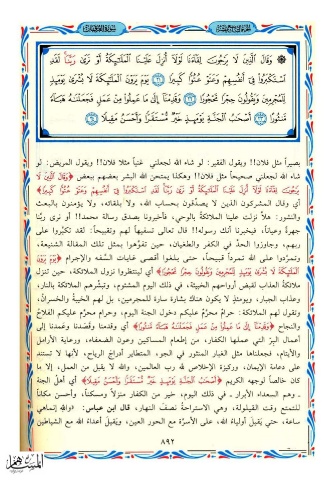 ۞ وَقَالَ الَّذِينَ لَا يَرْجُونَ لِقَاءَنَا لَوْلَا أُنزِلَ عَلَيْنَا الْمَلَائِكَةُ أَوْ نَرَىٰ رَبَّنَا لَقَدِ
اسْتَكْبَرُوا فِي أَنفُسِهِمْ وَعَتَوْ عُتُوًّا كَبِيرًا ۝٢١ يَوْمَ يَرَوْنَ الْمَلَائِكَةَ لَا بُشْرَىٰ يَوْمَئِذٍ
لِلْمُجْرِمِينَ وَيَقُولُونَ حِجْرًا مَحْجُورًا ۝٢٢ وَقَدِمْنَا إِلَىٰ مَا عَمِلُوا مِنْ عَمَلٍ فَجَعَلْنَاهُ هَبَاءً
مَنثُورًا ۝٢٣ أَصْحَابُ الْجَنَّةِ يَوْمَئِذٍ خَيْرٌ مُسْتَقَرًّا وَأَحْسَنُ مَقِيلًا ۝٢٤
بصيراً مثل فلان!! ويقول الفقير: لو شاء الله لجعلني غنياً مثلا فلان!! ويقول المريض: لو
شاء الله لجعلني صحيحاً مثل فلان!! وهكذا يمتحن الله البشر بعضهم ببعض ﴿وَقَالَ الَّذِينَ لَا
يَرْجُونَ لِقَاءَنَا لَوْلَا أُنزِلَ عَلَيْنَا الْمَلَائِكَةُ أَوْ نَرَىٰ رَبَّنَا لَقَدِ اسْتَكْبَرُوا فِي أَنفُسِهِمْ وَعَتَوْ عُتُوًّا كَبِيرًا﴾
أي وقال المشركون الذين لا يصدّقون بحساب الله، ولا بلقائه، ولا يؤمنون بالبعث
والنشور: هلاّ نزلت علينا الملائكةُ بالوحي، فأخبرونا بصدق رسالة محمد!! أو نرى ربَّنا
جهرةً وعياناً، فيخبرنا أنك رسوله!! قال تعالى تسفيهاً لهم وتقبيحاً: لقد تكبَّروا على
ربهم، وجاوزوا الحدَّ في الكفر والطغيان، حين تفوَّهوا بمثل تلك المقالة الشنيعة،
وتمرَّدوا على الله تمرداً قبيحاً، حتى بلغوا أقصى غايات السَّفه والإجرام ﴿يَوْمَ يَرَوْنَ
الْمَلَائِكَةَ لَا بُشْرَىٰ يَوْمَئِذٍ لِلْمُجْرِمِينَ وَيَقُولُونَ حِجْرًا مَحْجُورًا﴾ أي لينتظروا نزول الملائكة، حين تنزل
ملائكةُ العذاب لقبض أرواحهم الخبيثة، في ذلك اليوم المشئوم، وتبشِّرهم الملائكة بالنار،
وعذاب الجبار، ويومئذٍ لا يكون هناك بشارة سارة للمجرمين، بل لهم الخيبةُ والخسران،
وتقول لهم الملائكة: حرامٌ محرَّمٌ عليكم دخول الجنة اليوم، وحرام محرَّم عليكم الفلاحُ
والنجاح ﴿وَقَدِمْنَا إِلَىٰ مَا عَمِلُوا مِنْ عَمَلٍ فَجَعَلْنَاهُ هَبَاءً مَنثُورًا﴾ أي وقدمنا وقَصَدنا وعَمَدنا إلى
أعمال البِرِّ التي عملها الكفار، من إطعام المساكين وعون الضعفاء، ورعاية الأرامل
والأيتام، فجعلناها مثل الغبار المنثور في الجو، المتطاير أدراجَ الرياح، لأنها لا تستند
على دعامة الإيمان، وركيزة الإخلاص لله رب العالمين، والله لا يقبل من العمل، إلا ما
كان خالصاً لوجهه الكريم ﴿أَصْحَابُ الْجَنَّةِ يَوْمَئِذٍ خَيْرٌ مُسْتَقَرًّا وَأَحْسَنُ مَقِيلًا﴾ أي أهلُ الجنة
ـ وهم السعداء الأبرار ـ في ذلك اليوم، خير من الكفار منزلاً ومسكناً، وأحسن مكاناً
للتمتع وقت القيلولة، وهي الاستراحةُ نصفَ النهار، قال ابن عباس: «والله إنماهي
ساعة، حتى يَقيلَ أولياءُ الله، على الأسرَّة مع الحور العين، ويَقيلَ أعداءُ الله مع الشياطين
٨٩٢